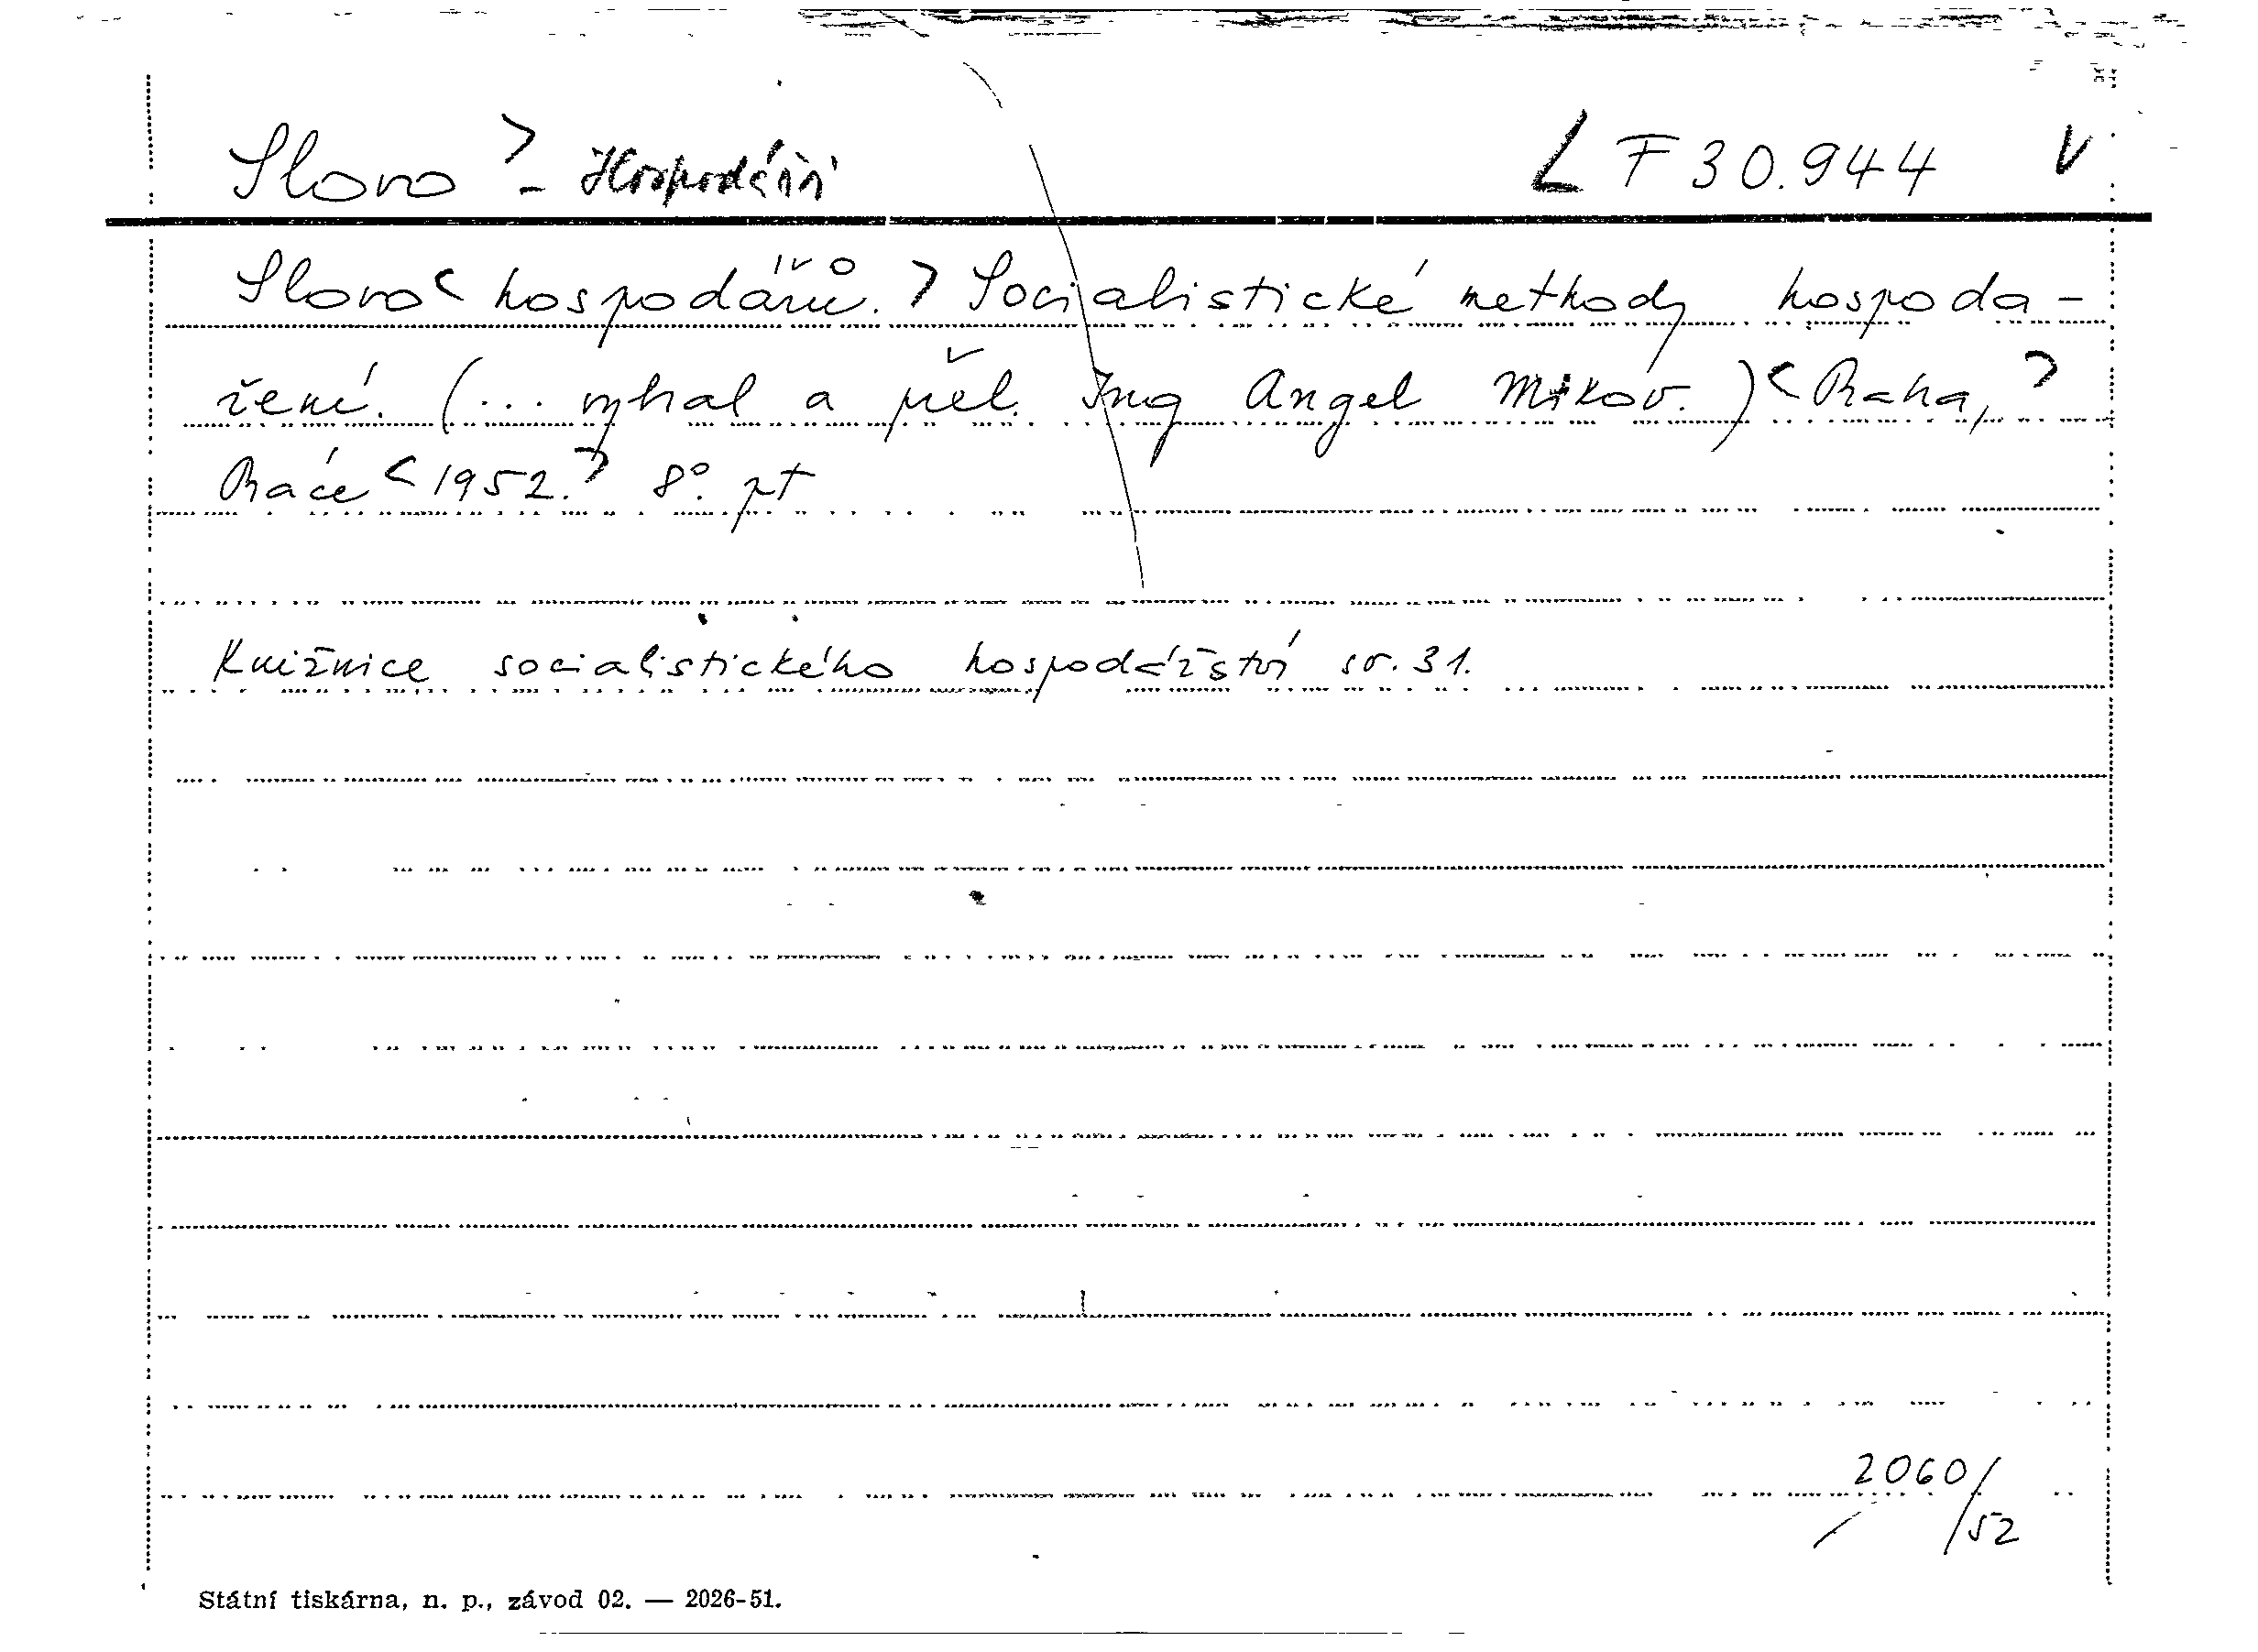 Slovo > - Hospodářů L F 30.944 V
Slovo < hospodářů. > Socialistické methody hospoda-
ření. (... vybral a přel. Ing Angel Mikov.) < Praha, >
Práce < 1952. > 8°. pt
Knižnice socialistického hospodářství sv. 31.
2060/
/52
Státní tiskárna, n. p., závod 02. — 2026-51.